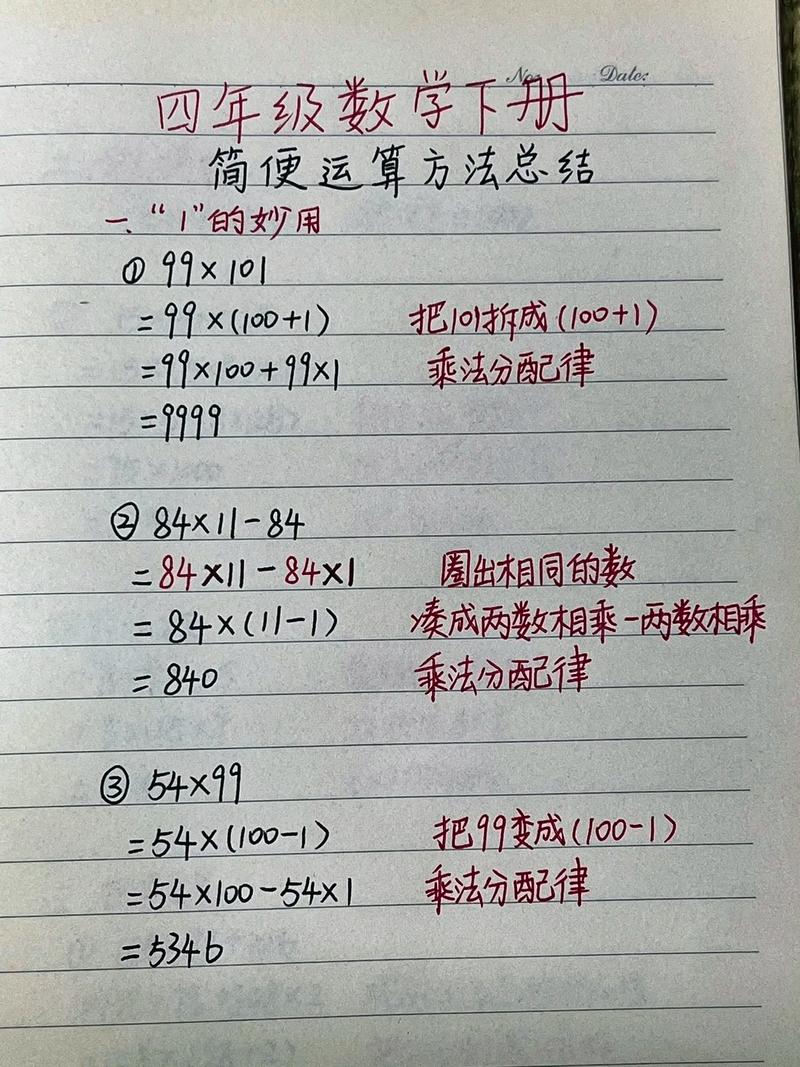 No:    Date:
四年级数学下册
简便运算方法总结
一、“1”的妙用
① 99×101
=99×(100+1)    把101拆成(100+1)
=99×100+99×1    乘法分配律
=9999
② 84×11-84
=84×11-84×1    圈出相同的数
=84×(11-1)    凑成两数相乘-两数相乘
=840    乘法分配律
③ 54×99
=54×(100-1)    把99变成(100-1)
=54×100-54×1    乘法分配律
=5346